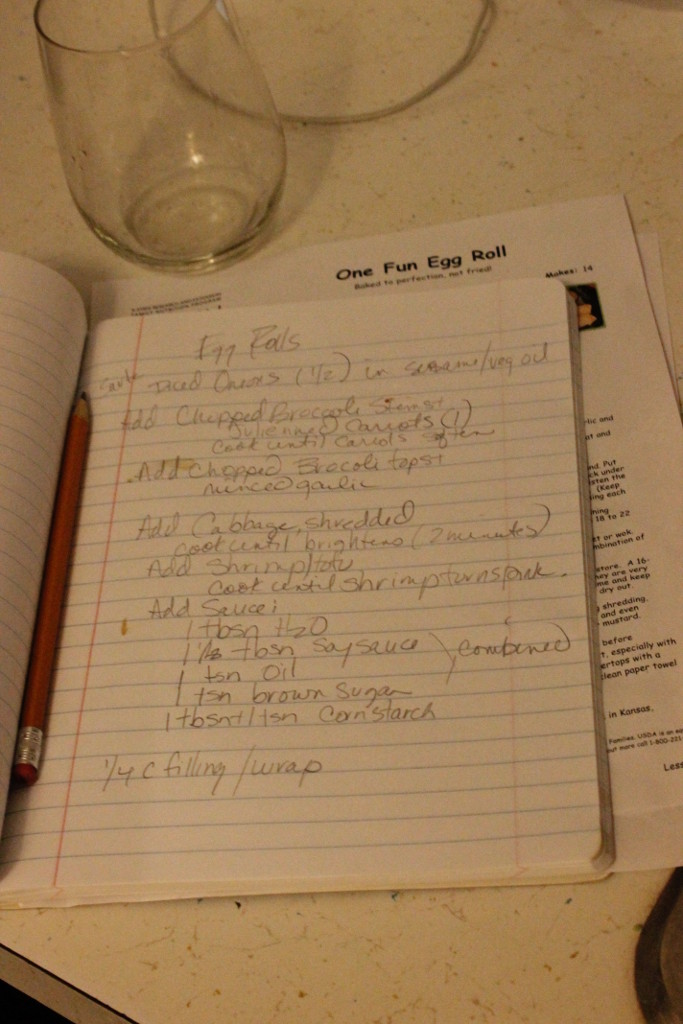 One Fun Egg Roll
Baked to perfection, not fried!
Makes: 14
Egg Rolls
Diced Onions (1/2) in sesame/veg oil
Add Chopped Broccoli Stems +
Julienned Carrots (1)
cook until carrots soften
Add Chopped Brocoli tops +
minced garlic
Add Cabbage, shredded
cook until brightens (2 minutes)
Add Shrimp/tofu
cook until shrimp turns pink.
Add Sauce:
1 tbsn H2O
tbsn soysauce
1 tsn Oil
combined
1 tsn brown sugar
1 tbsn + 1 tsn Cornstarch
1/4 C filling / wrap
lic and
at and
nd. Put
ck under
sten the
(Keep
ing each
ning
18 to 22
et or wok.
mbination of
store. A 16-
ey are very
me and keep
dry out.
shredding,
and even
mustard.
before
t, especially with
ertops with a
lean paper towel
in Kansas.
Families. USDA is an eq
out more call 1-800-221
Less